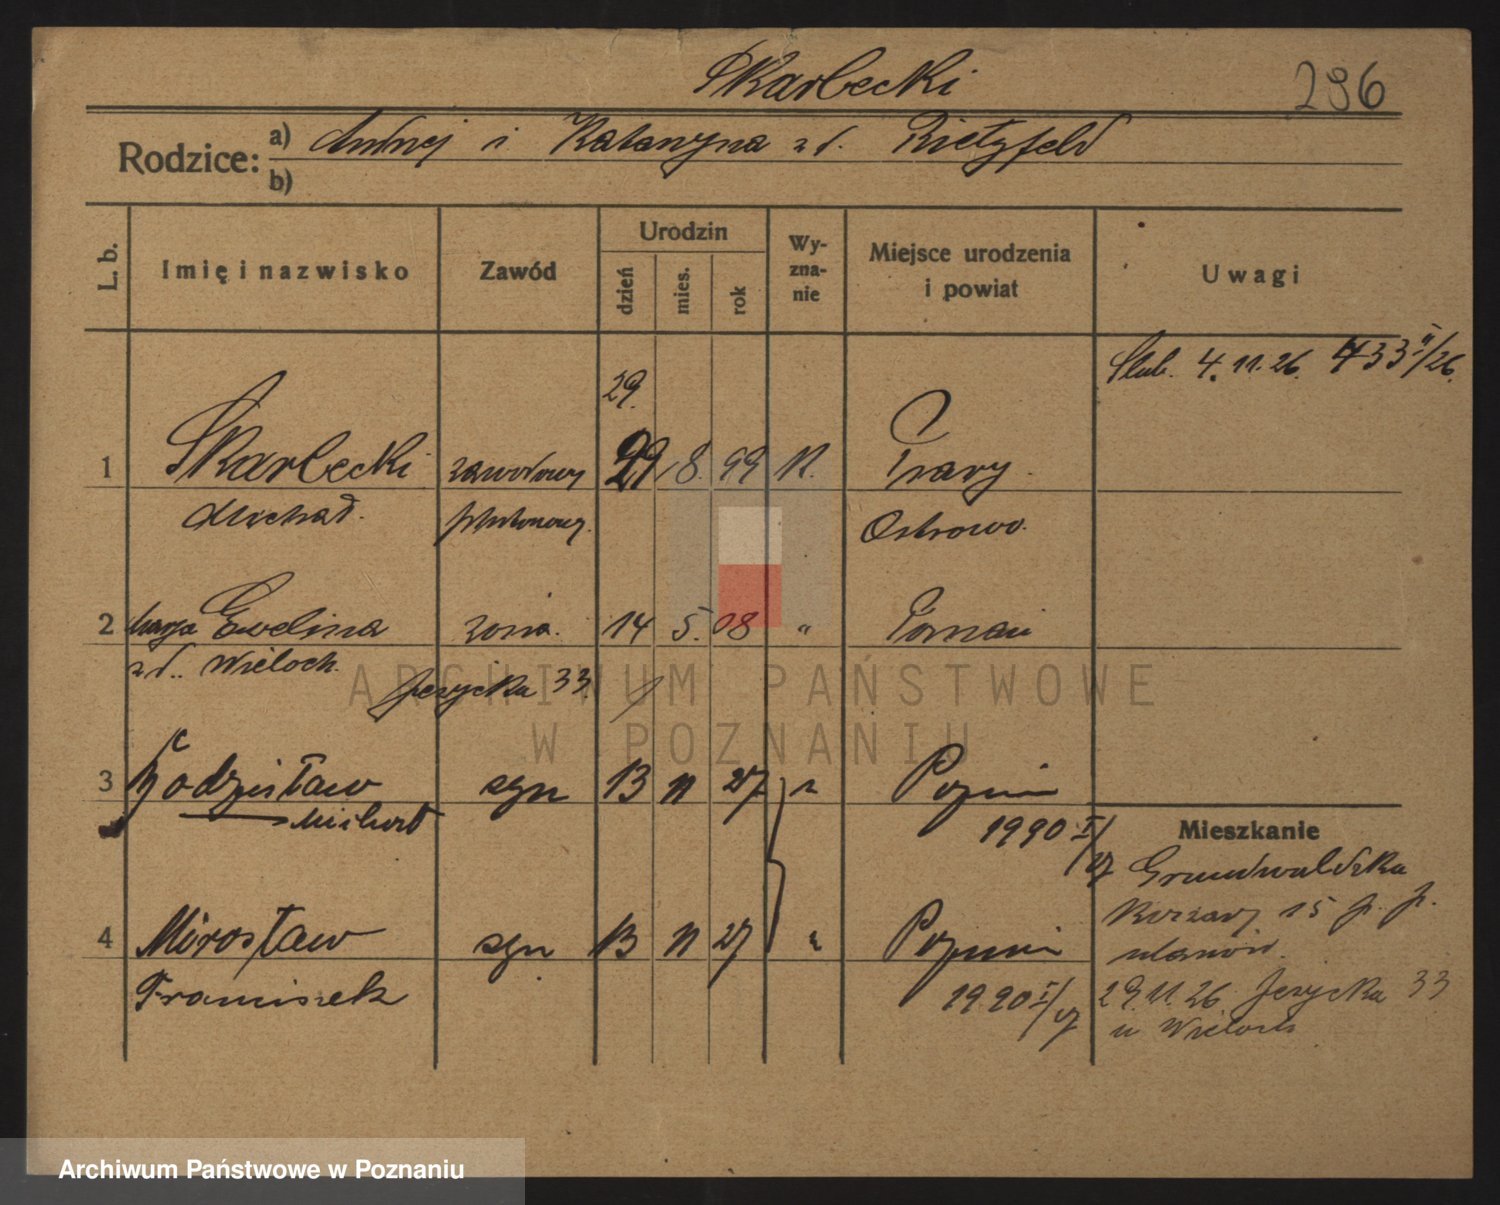 Skarbecki 296
Rodzice: a) Andrzej i Katarzyna zd.
b)
L. b. Imię i nazwisko Zawód Urodzin dzień mies. rok Wyznanie Miejsce urodzenia i powiat Uwagi
Ślub. 4. 11. 26. 433 II/26.
29.
1 Skarbecki zawodowy 29 8. 99 K.
Michał. plutonowy. Ostrowo.
2 Ewelina żona. 14 5. 08 " Poznań
zd. Wieloch.
Jeżycka 33
3 Godzisław syn 13 11 27 Poznań
Michał 1990 I/27
Mieszkanie
Grunwaldzka
Koszary 15 p. p.
ułanów.
4 Mirosław syn 13 11 27 Poznań
Franciszek
29. 11. 26. Jeżycka 33
u Wieloch
ARCHIWUM PAŃSTWOWE
W POZNANIU
Archiwum Państwowe w Poznaniu